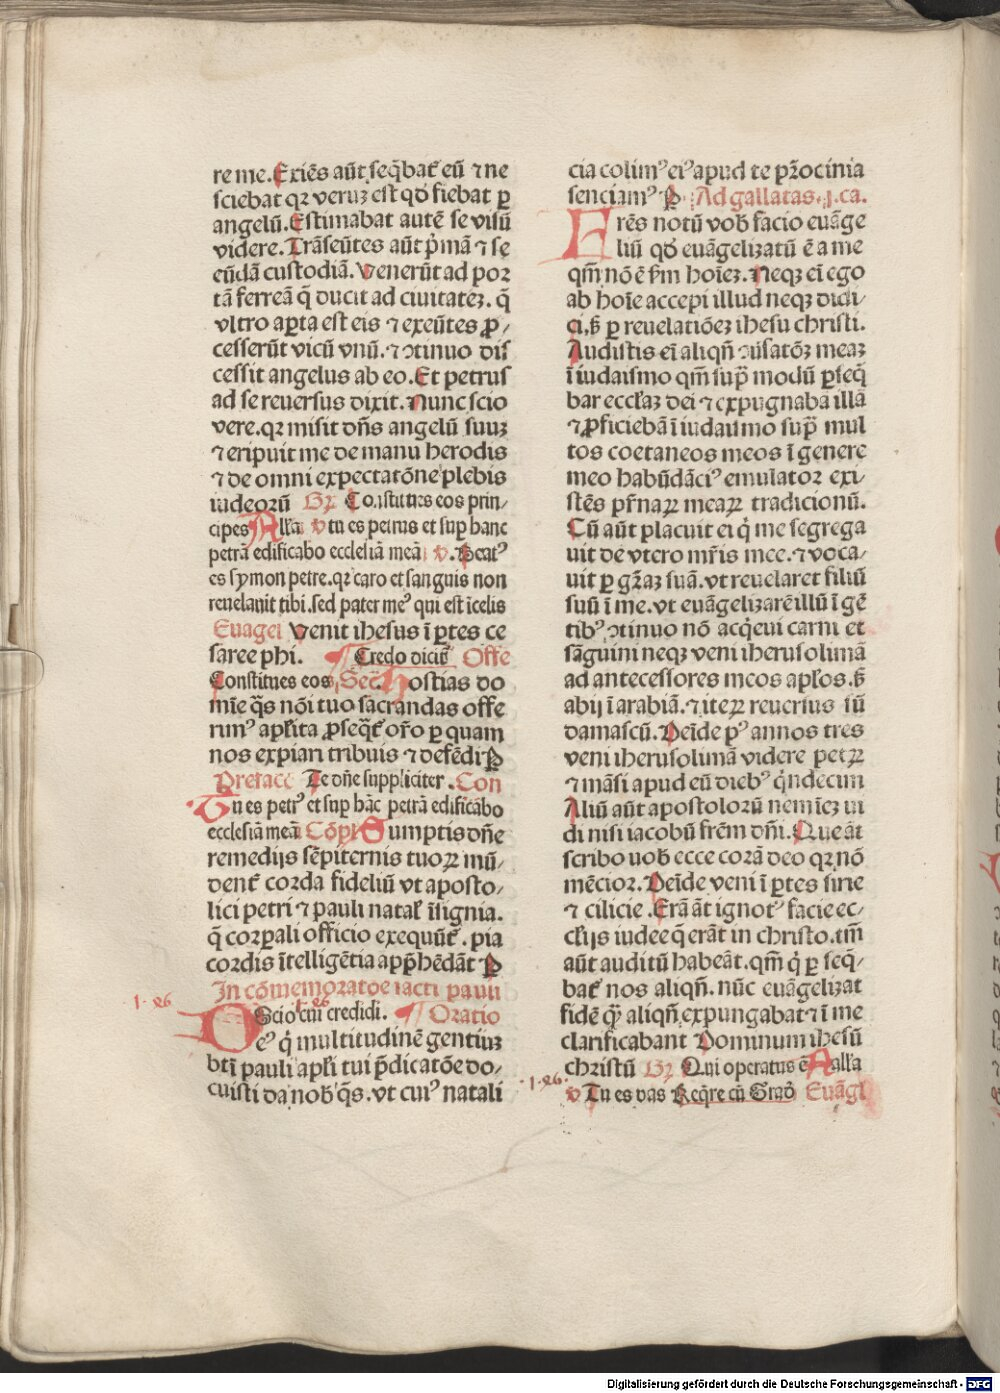 re me. Exiēs aūt seq̄bat᷒ eū ⁊ ne
sciebat qꝛ veruꝫ est qd̕ fiebat ꝑ
angelū. Estimabat autē se visū
videre. Trāseūtes aūt p̄mā ⁊ se
cūdā custodiā. Venerūt ad poꝛ
tā ferreā q̄ ducit ad ciuitateꝫ. q̄
vltro aꝑta est eis ⁊ exeūtes ꝓ/
cesserūt vicū vnū. ⁊ ↄtinuo dis
cessit angelus ab eo. Et petrus
ad se reuersus dixit. Nunc scio
vere. qꝛ misit dn̄s angelū suuꝫ
⁊ eripuit me de manu herodis
⁊ de omni expectatōne plebis
iudeorū Gꝛ Constitues eos prin-
cipes Alla v tu es petrus et sup hanc
petrā edificabo eccleliā meā v. Beatꝰ
es symon petre. qꝛ caro et sanguis non
reuelauit tibi. sed pater meꝰ qui est ī celis
Euagei Venit ihesus ī ꝑtes ce
saree phi. Credo dicit᷒ Offe
Constitues eos Sec̄ Hostias do
mīe q̄s nōi tuo sacrandas offe
rimꝰ apl̕ita ꝓseq̄t᷒ or̄o ꝑ quam
nos expiari tribuis ⁊ defēdi ꝑ
Preface Te dn̄e suppliciter. Con
Tu es petrꝰ et sup hāc petrā edificabo
ecclesiā meā Cōpl Sumptis dn̄e
remedijs sēpiternis tuoꝝ mū/
dent᷒ corda fideliū vt aposto/
lici petri ⁊ pauli natal̕ īsignia.
q̄ corꝑali officio exequūt᷒. pia
cordis ītelligētia app̄hēdāt ꝑ
In cōmemoratōe sacti pauli
1. 26
Scio cui credidi. Oratio
Deꝰ q̄ multitudinē gentiuꝫ
bti̅ pauli apl̕i tui p̄dicatōe do/
cuisti da nob̕ q̄s. vt cuiꝰ natali
cia colimꝰ eiꝰ apud te pꝛ̄ocinia
senciamꝰ ꝑ Ad gallatas. j. ca.
Frēs notū vob̕ facio euāge
liū qd̕ euāgelizatū ē a me
qm̄ nō ē ẜm hoīeꝫ. Neqꝫ ei̅ ego
ab hoīe accepi illud neqꝫ didi/
ci, ẜ ꝑ reuelatiōeꝫ ihesu christi.
Audistis ei̅ aliqn̄ ↄūsatōꝫ meaꝫ
ī iudaismo qm̄ sup̄ modū ꝑseq̄
bar eccl̕aꝫ dei ⁊ expugnabā illā
⁊ ꝓficiebā ī iudaismo sup̄ mul
tos coetaneos meos ī genere
meo habūdāciꝰ emulator exi/
stēs pr̄naꝝ meaꝝ tradicionū.
Cū aūt placuit ei q̄ me segrega
uit de vtero mr̄is mee. ⁊ voca/
uit ꝑ gr̄aꝫ suā. vt reuelaret filiū
suū ī me. vt euāgelizarē illū ī gē
tibꝰ ↄtinuo nō acq̄eui carni et
sāguini neqꝫ veni iherusolimā
ad antecessores meos apl̕os. ẜ
abij ī arabiā. ⁊ iteꝝ reuersus sū
damascū. Deīde pꝰ annos tres
veni iherusolimā videre petꝝ
⁊ māsi apud eū diebꝰ q̄ndecim
Aliū aūt apostoloꝝ nemīeꝫ ui
di nisi iacobū frēm dn̄i. Que āt
scribo uob̕ ecce corā deo qꝛ nō
mēcior. Deīde veni ī ꝑtes sirie
⁊ cilicie. Erā āt ignotꝰ facie ec/
cl̕ijs iudee q̄ erāt in christo. tm̄
aūt auditū habeāt. qm̄ q̄ ꝑ seq̄-
bat᷒ nos aliqn̄. nūc euāgelizat
fidē q̄ꝫ aliqn̄ expungabat ⁊ ī me
clarificabant Dominum ihesū
christū Gꝛ Qui operatus ē Alla
·1·26·
v Tu es vas Req̄re cū Grad̕ Euāgl